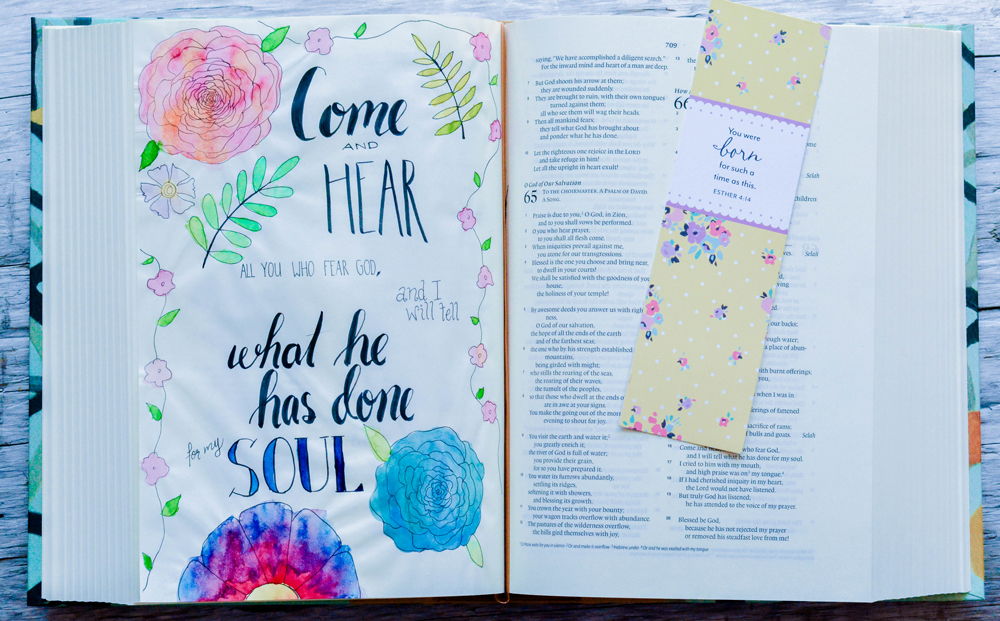 Come
AND
HEAR
ALL YOU WHO FEAR GOD,
and I
will tell
what he
has done
for my
SOUL
709
saying, "We have accomplished a diligent search."
For the inward mind and heart of a man are deep.
But God shoots his arrow at them;
they are wounded suddenly.
They are brought to ruin, with their own tongues
turned against them;
all who see them will wag their heads.
Then all mankind fears;
they tell what God has brought about
and ponder what he has done.
Let the righteous one rejoice in the LORD
and take refuge in him!
Let all the upright in heart exult!
O God of Our Salvation
65 TO THE CHOIRMASTER. A PSALM OF DAVID.
A SONG.
Praise is due to you, O God, in Zion,
and to you shall vows be performed.
O you who hear prayer,
to you shall all flesh come.
When iniquities prevail against me,
you atone for our transgressions.
Blessed is the one you choose and bring near,
to dwell in your courts!
We shall be satisfied with the goodness of your
house,
the holiness of your temple!
By awesome deeds you answer us with right
ness,
O God of our salvation,
the hope of all the ends of the earth
and of the farthest seas;
the one who by his strength established
mountains,
being girded with might;
who stills the roaring of the seas,
the roaring of their waves,
the tumult of the peoples,
so that those who dwell at the ends of
are in awe at your signs.
You make the going out of the mor
evening to shout for joy.
You visit the earth and water it;
you greatly enrich it;
the river of God is full of water;
you provide their grain,
for so you have prepared it.
You water its furrows abundantly,
settling its ridges,
softening it with showers,
and blessing its growth.
You crown the year with your bounty;
your wagon tracks overflow with abundance.
The pastures of the wilderness overflow,
the hills gird themselves with joy,
You were
born
for such a
time as this.
ESTHER 4:14
How
66
Selah
children
ves. Selah
ing
our backs;
ough water;
a place of abun-
th burnt offerings,
you,
when I was in
erings of fattened
sacrifice of rams;
bulls and goats. Selah
Come and
and I will tell what he has done for my soul.
17 I cried to him with my mouth,
and high praise was on my tongue.
18 If I had cherished iniquity in my heart,
the Lord would not have listened.
19 But truly God has listened;
he has attended to the voice of my prayer.
20 Blessed be God,
because he has not rejected my prayer
or removed his steadfast love from me!